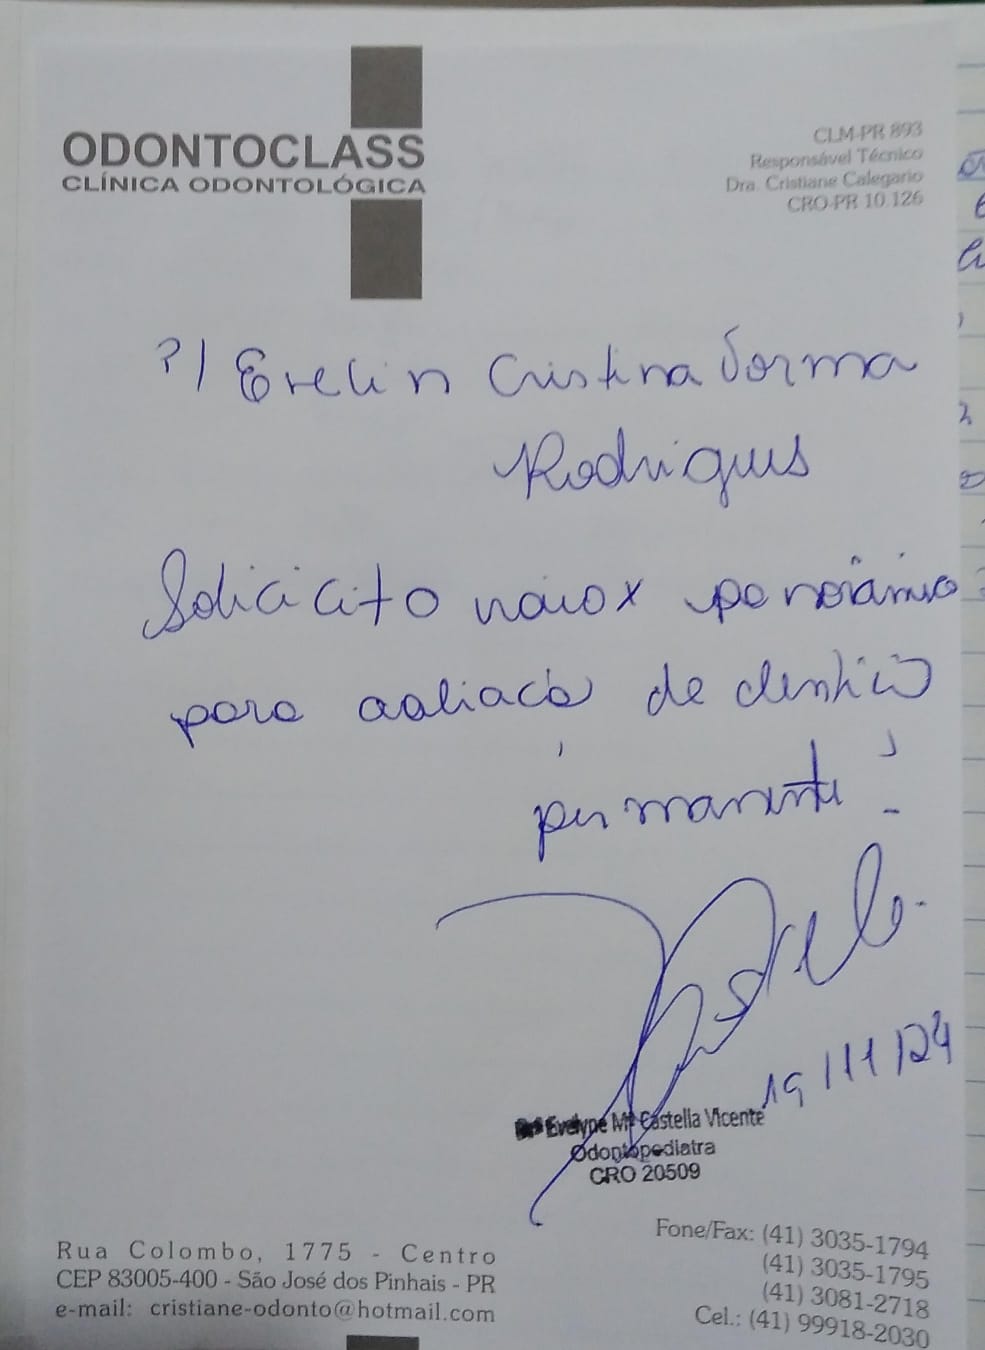 ODONTOCLASS
CLÍNICA ODONTOLÓGICA
CLM-PR 893
Responsável Técnico
Dra. Cristiane Calegario
CRO-PR 10.126
P/ Evelin Cristina
Rodrigues
Solicito raio x panorâmico
para avaliação de dentição
permanente.
19/11/24
Evelyne Mª Castella Vicente
Odontopediatra
CRO 20509
Rua Colombo, 1775 - Centro
CEP 83005-400 - São José dos Pinhais - PR
e-mail: cristiane-odonto@hotmail.com
Fone/Fax: (41) 3035-1794
(41) 3035-1795
(41) 3081-2718
Cel.: (41) 99918-2030